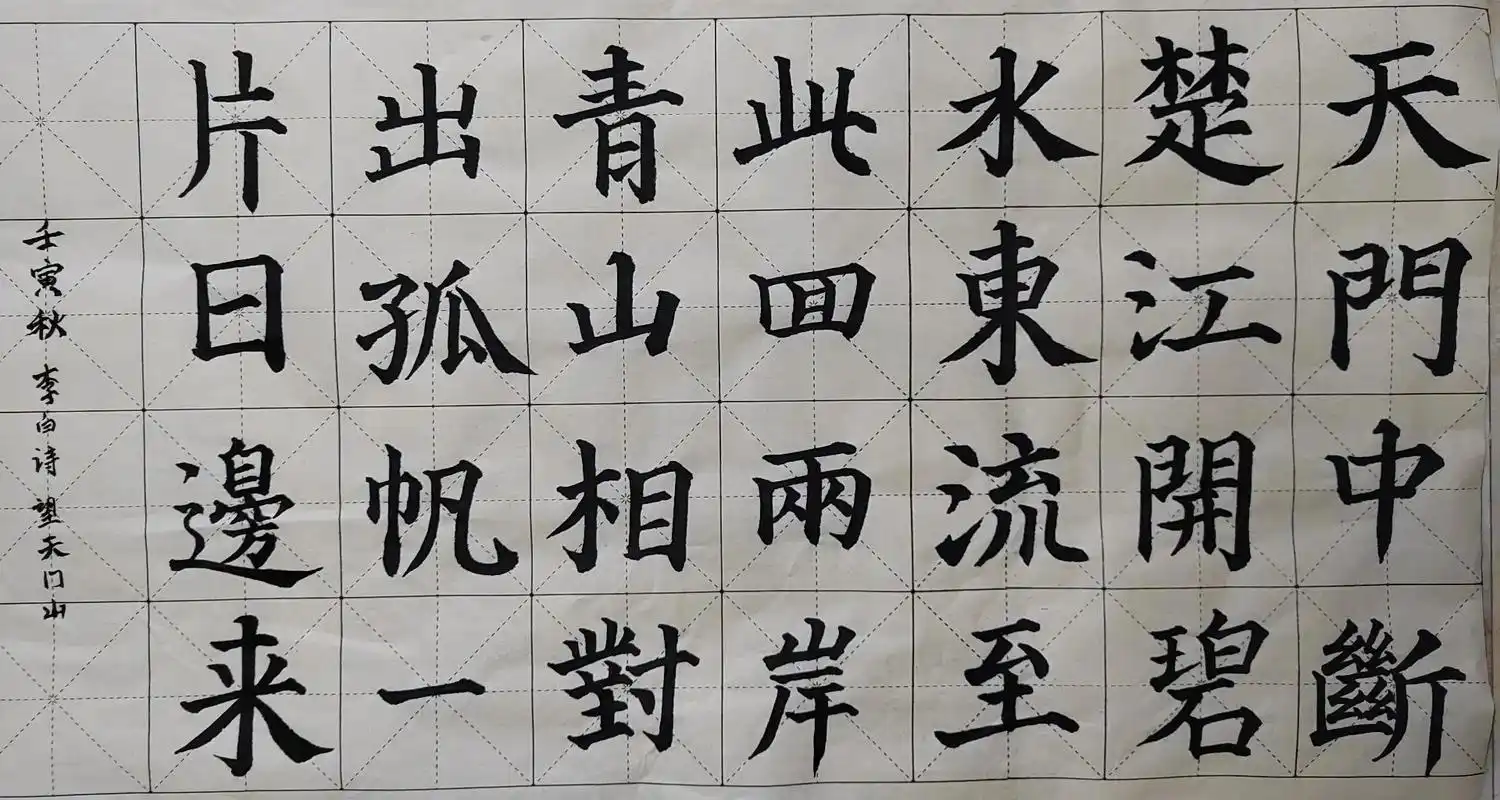 天門中斷
楚江開碧
水東流至
此回兩岸
青山相對
出孤帆一
片日邊来
壬寅秋 李白诗 望天门山